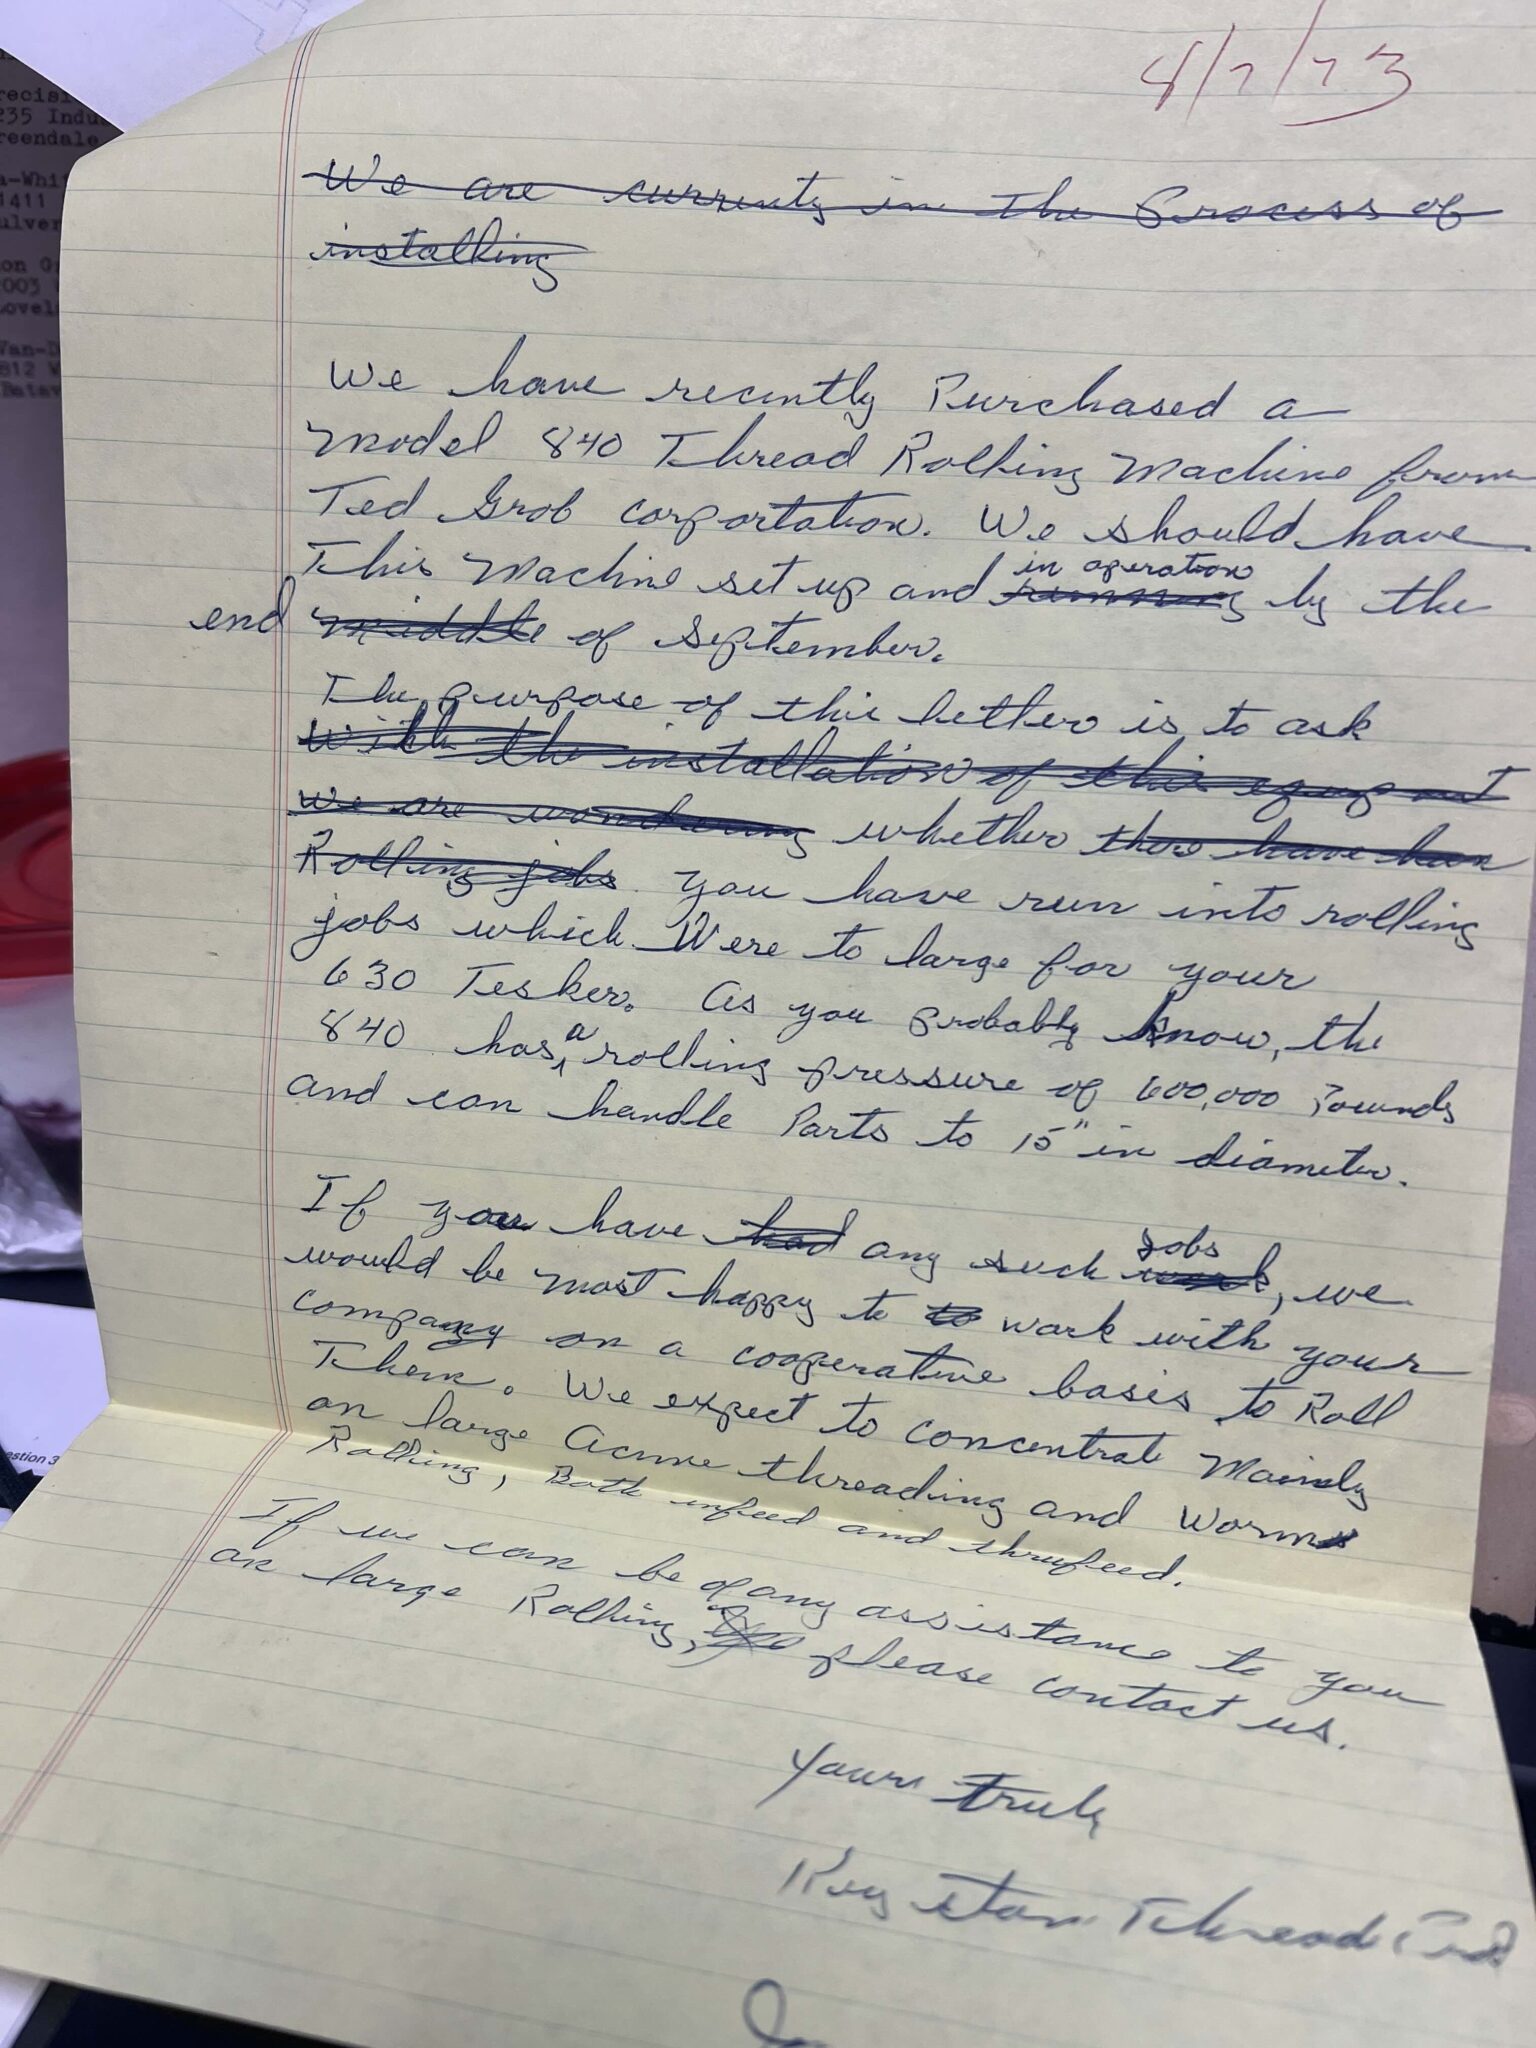 8/7/73
We are currenty in the Process of
installing
We have recently Purchased a
Model 840 Thread Rolling Machine from
Ted Grob corportation. We should have
in operation
This Machine set up and running by the
end middle of September.
The purpose of this letter is to ask
With the installation of this
we are wondering whether
Rolling jobs you have run into rolling
jobs which Were to large for your
630 Tesker. As you probably know, the
840 has a rolling pressure of 600,000 Pounds
and can handle Parts to 15" in diameter.
jobs
If you have had any such work, we
would be most happy to to work with your
company on a cooperative basis to Roll
Them. We expect to concentrate Mainly
on large Acme threading and Worm
Rolling, Both infeed and thrufeed.
If we can be of any assistance to you
on large Rolling, please contact us.
Yours truly
Keystone Thread
recisi
235 Indu
reendale
a-Whi
1411
ulver
on G
2003
Lovel
Van-D
812 W
Batav
estion 3